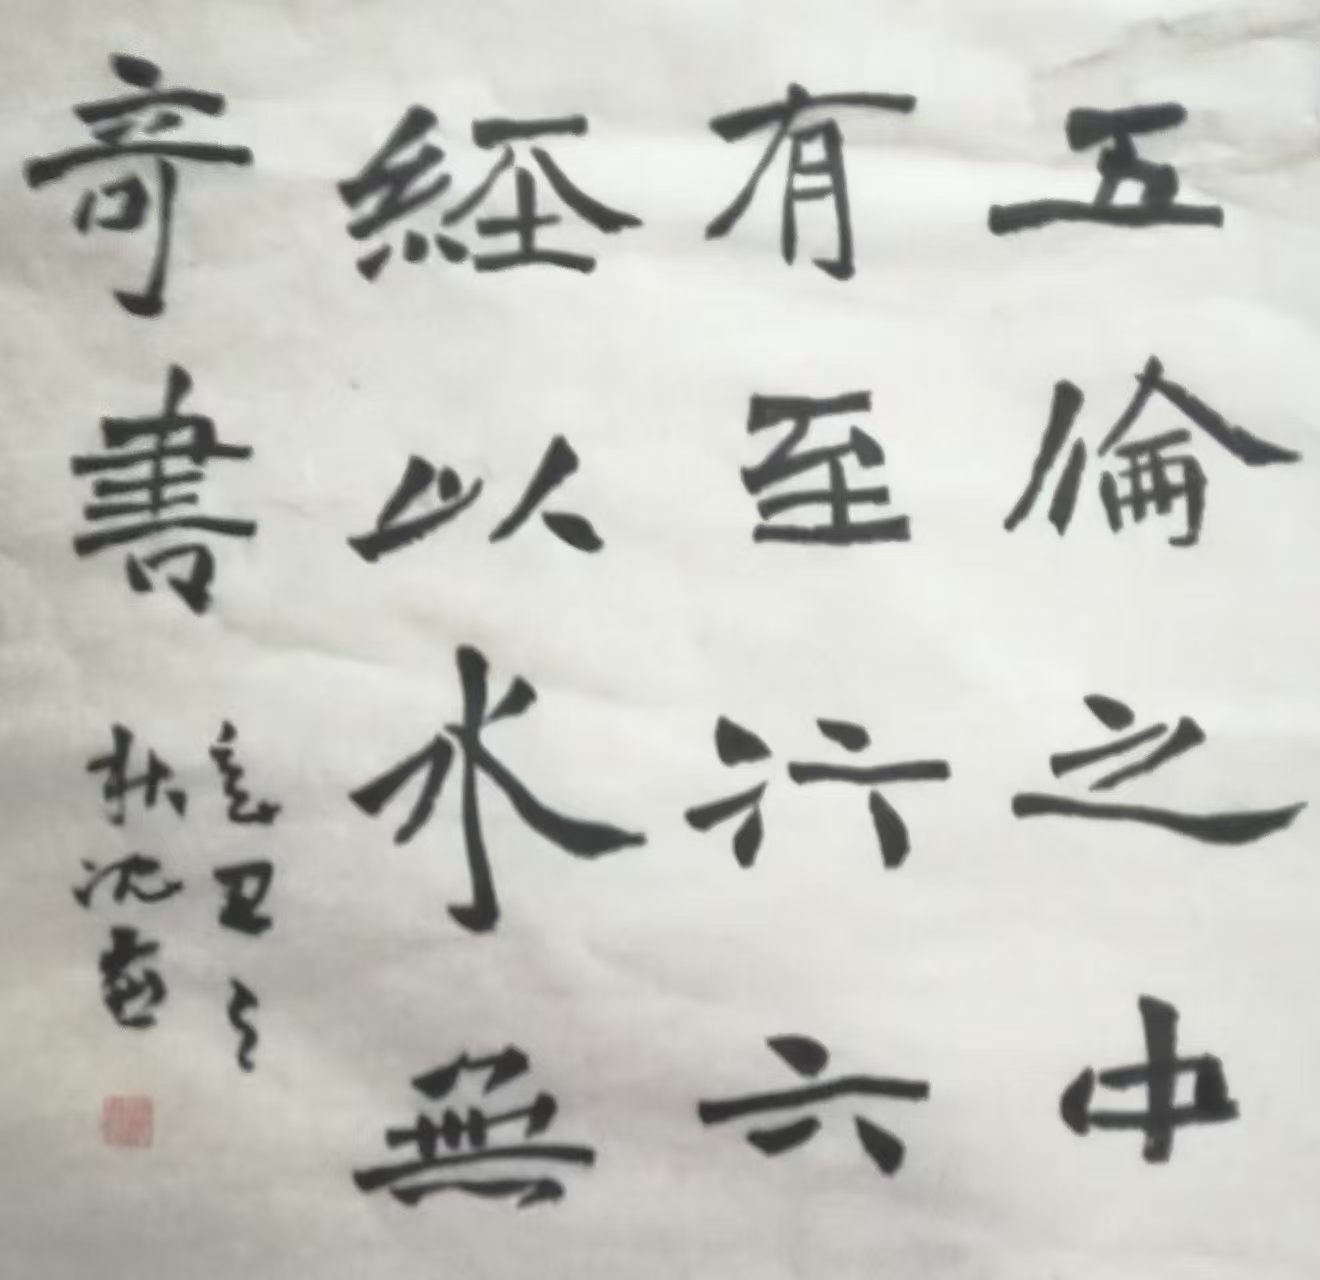 五倫之中
有至六
經以水無
奇書
辛丑之
秋沈